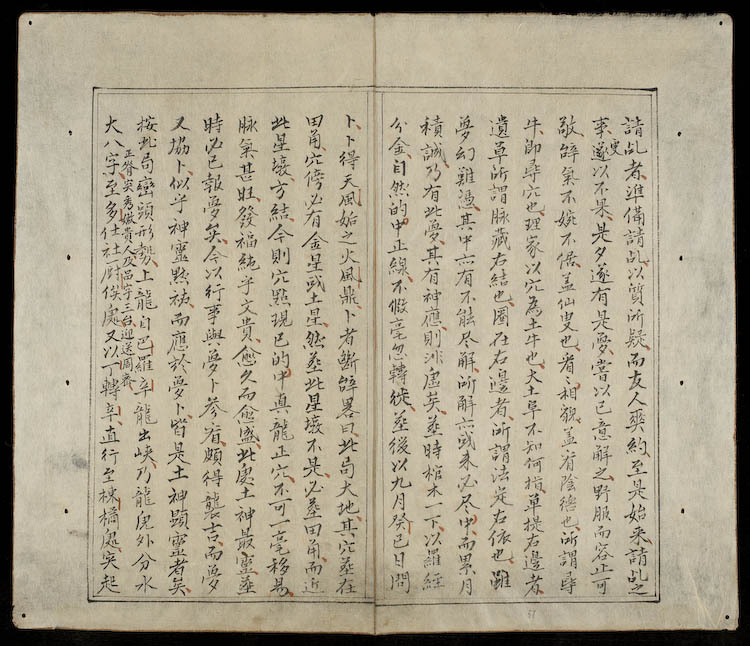 請乩者準備請乩以質所疑而友人爽約至是始来請乩之
事遂以不果是夕遂有是夢嘗以已意解之野服而容止可
叟
敬辭氣不婉不倨盖仙叟也者相貌盖有陰德也所謂尋
牛卽尋穴也理家以穴為土牛也大土阜不知何指草提右邊者
遺草所謂脉藏右結也圈在右邊者所謂法定右依也雖
夢幻難憑其中亦有不能尽解所解亦或未必尽中而累月
積誠乃有此夢其有神應則洪虚矣塟時棺木一下以羅經
分金自然的中正線不假毫忽轉徙塟後以九月癸巳日問
卜卜得天風姤之火風鼎卜者斷辭畧曰此局大地其穴塟在
田角穴傍必有金星或土星然塟此星壕不是必塟田角而近
此星壕方結今則穴點現已的中真龍正穴不可一毫移易
脉氣甚旺發福純乎文貴愈久而愈盛此處土神最靈塟
時必已報夢矣今以行事與夢卜參省頗得襲吉而夢
又協卜似乎神靈黙祐而應於夢卜皆是土神顕靈者矣
按此局巒頭形勢上龍自巴羅辛龍出峡乃龍虎外分水
正脊尖秀做貴人及昌字三台迎送周齊
大八字至多仕社厨俟處又以丁轉辛直行至棟橘處突起